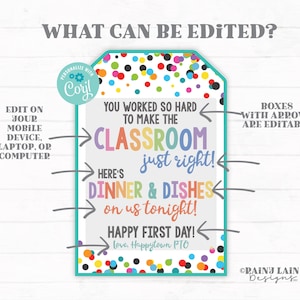 WHAT CAN BE EDITED?
PERSONALIZE WITH
Corjl
EDIT ON
YOUR
MOBILE
DEVICE,
LAPTOP, OR
COMPUTER
YOU WORKED SO HARD
TO MAKE THE
CLASSROOM
just right!
HERE'S
DINNER & DISHES
on us tonight!
HAPPY FIRST DAY!
Love, Happytown PTO
BOXES
WITH ARROW
ARE EDITAB
©RAINY LAIN
Designs